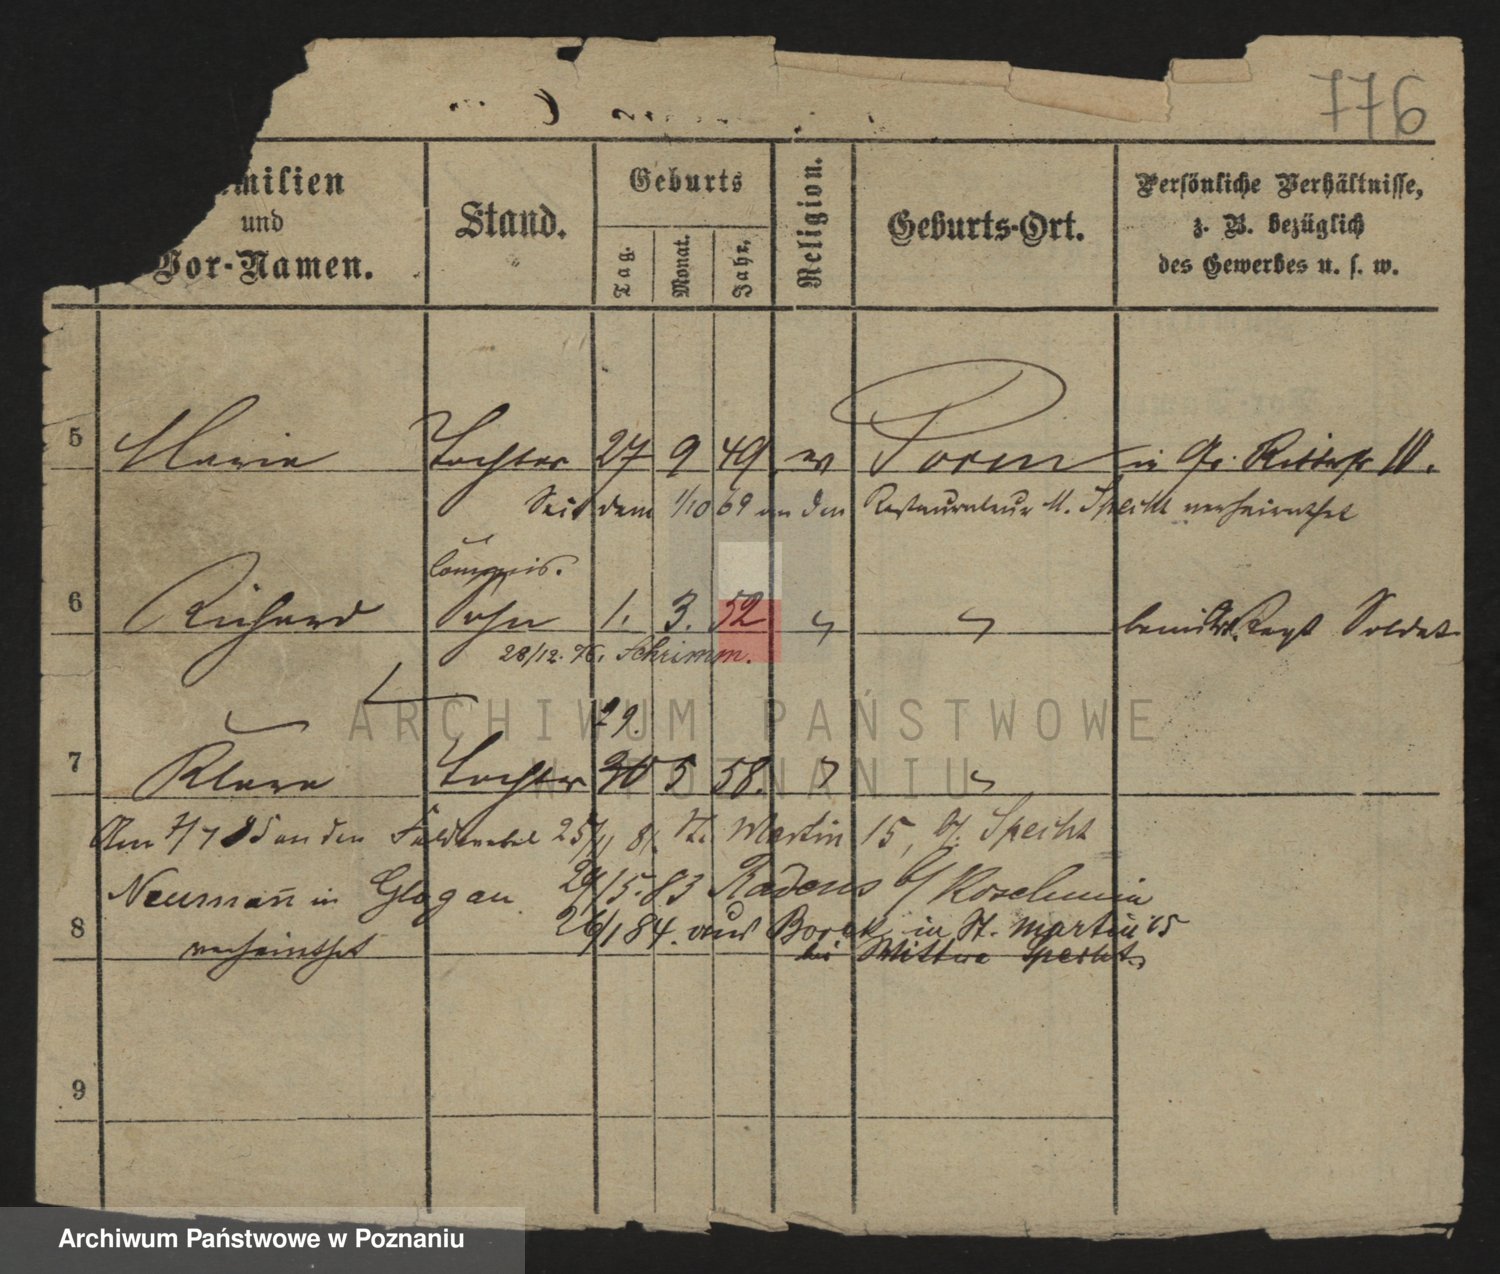 776
milien
und
Vor-Namen.
Stand.
Geburts
Tag.
Monat.
Jahr.
Religion.
Geburts-Ort.
Persönliche Verhältnisse,
z. B. bezüglich
des Gewerbes u. s. w.
5 Maria Tochter 27 9 49 ev Posen in Gr. Ritterstr 10.
Seit dem 1/10 69 an den Restaurateur Specht verheirathet
6 Richard Sohn 1. 3. 52 " " beim Regt Soldat
28/12. 76. Schrimm.
29.
7 Klara Tochter 30 5 58. " "
Am 7/7 85 an den Feldwebel 25/11 81. St. Martin 15, b/ Specht
Neumann in Glogau 24/5.83 Radens b/ Koschmin
26/1 84. aus Borek in St. Martin 15
8 verheirathet bei Wittwe Specht.
9
ARCHIWUM PAŃSTWOWE
W POZNANIU
Archiwum Państwowe w Poznaniu